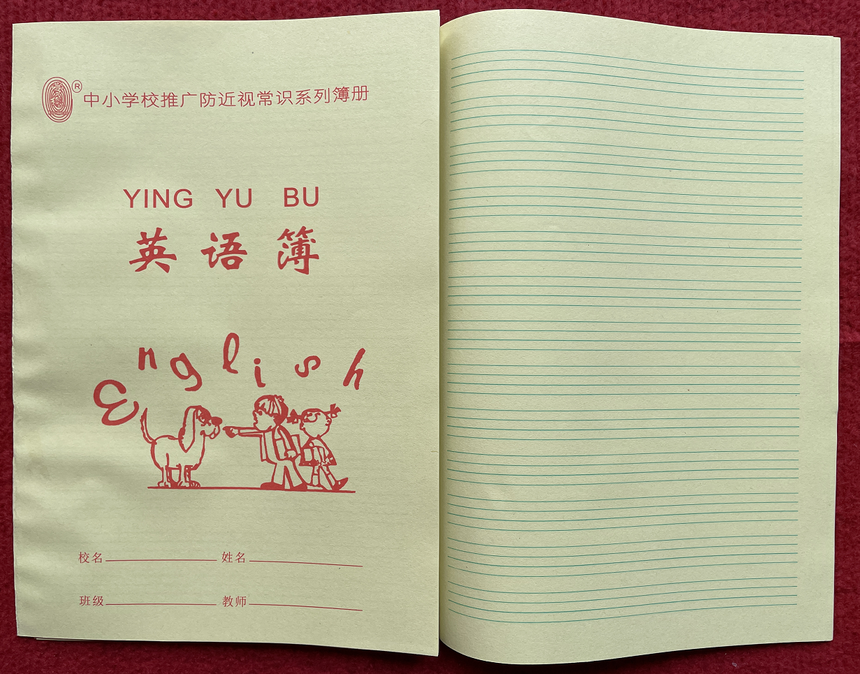 ® 中小学校推广防近视常识系列簿册
YING YU BU
英语簿
English
校名 姓名
班级 教师